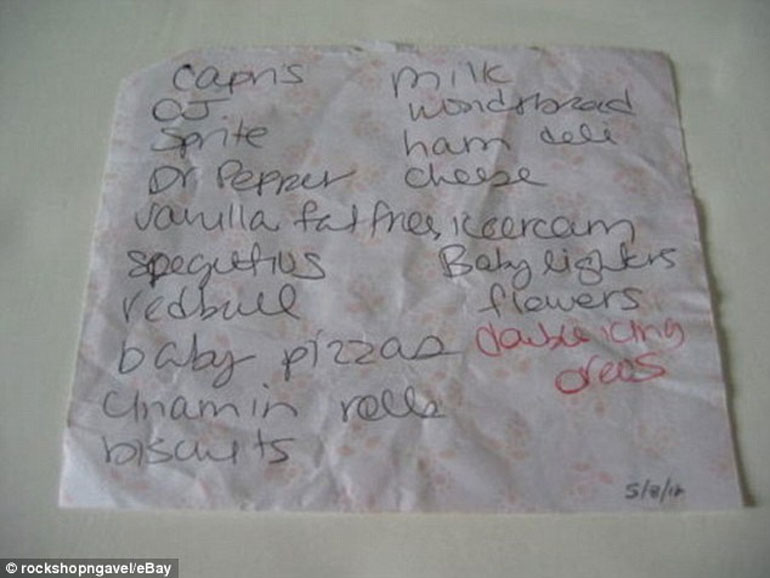 capris milk
OJ wonderbread
Sprite ham deli
Dr Pepper cheese
vanilla fat free, iceercam
spegutius Baby lighters
redbull flowers
baby pizzas double icing
oreos
Cinamin rolls
biscuits
5/8/12
© rockshopngavel/eBay